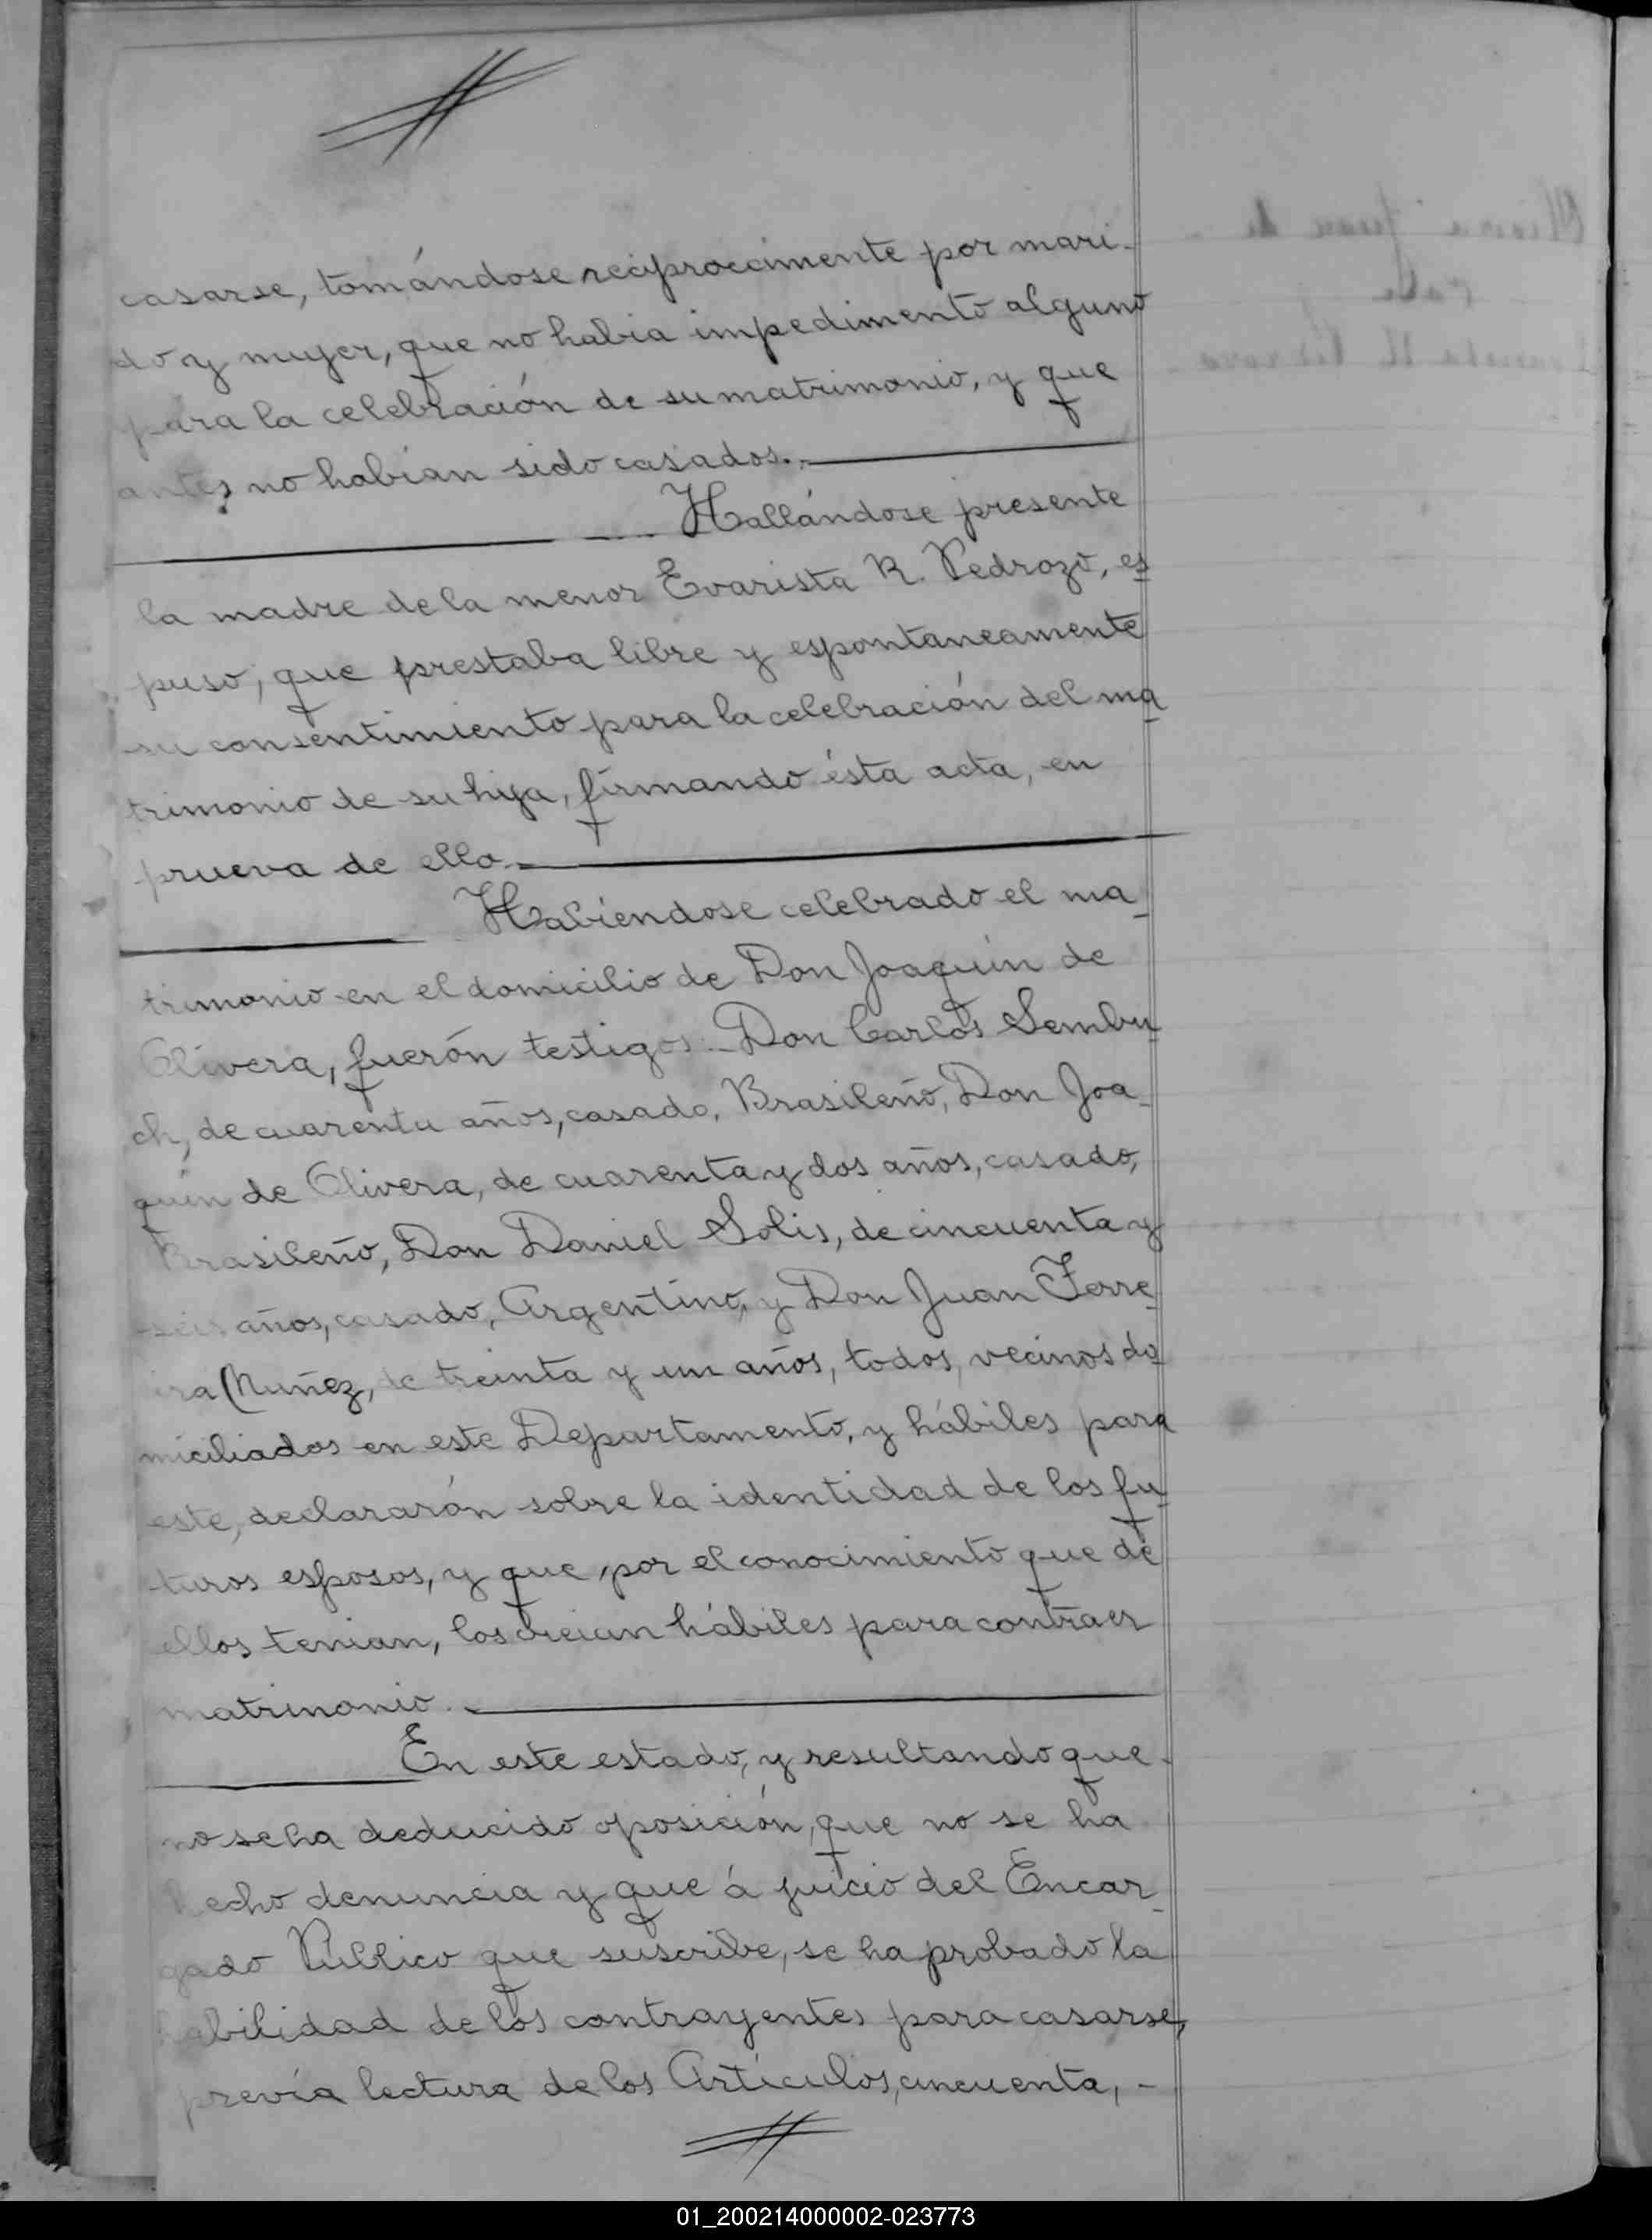 casarse, tomándose reciprocamente por mari-
do y mujer, que no habia impedimento alguno
para la celebración de su matrimonio, y que
antes no habían sido casados.
Hallándose presente
la madre de la menor Evarista R. Pedrozo, es
puso, que prestaba libre y espontaneamente
su consentimiento para la celebración del ma
trimonio de su hija, firmando ésta acta, en
prueva de ello.
Habiendose celebrado el ma-
trimonio en el domicilio de Don Joaquin de
Olivera, fuerón testigos: Don Carlos Sembu
ch, de cuarenta años, casado, Brasileño, Don Joa-
quin de Olivera, de cuarenta y dos años, casado,
Brasileño, Don Daniel Solis, de cincuenta y
seis años, casado, Argentino, y Don Juan Ferre-
ira Nuñez, de treinta y un años, todos, vecinos do
miciliados en este Departamento, y hábiles para
este, declararón sobre la identidad de los fu-
turos esposos, y que, por el conocimiento que de
ellos tenian, los creian hábiles para contraer
matrimonio.
En este estado, y resultando que
no se ha deducido oposición, que no se ha
hecho denuncia y que á juicio del Encar-
gado Público que suscribe, se ha probado la
habilidad de los contrayentes para casarse,
previa lectura de los Artículos, cincuenta, -
01_200214000002-023773